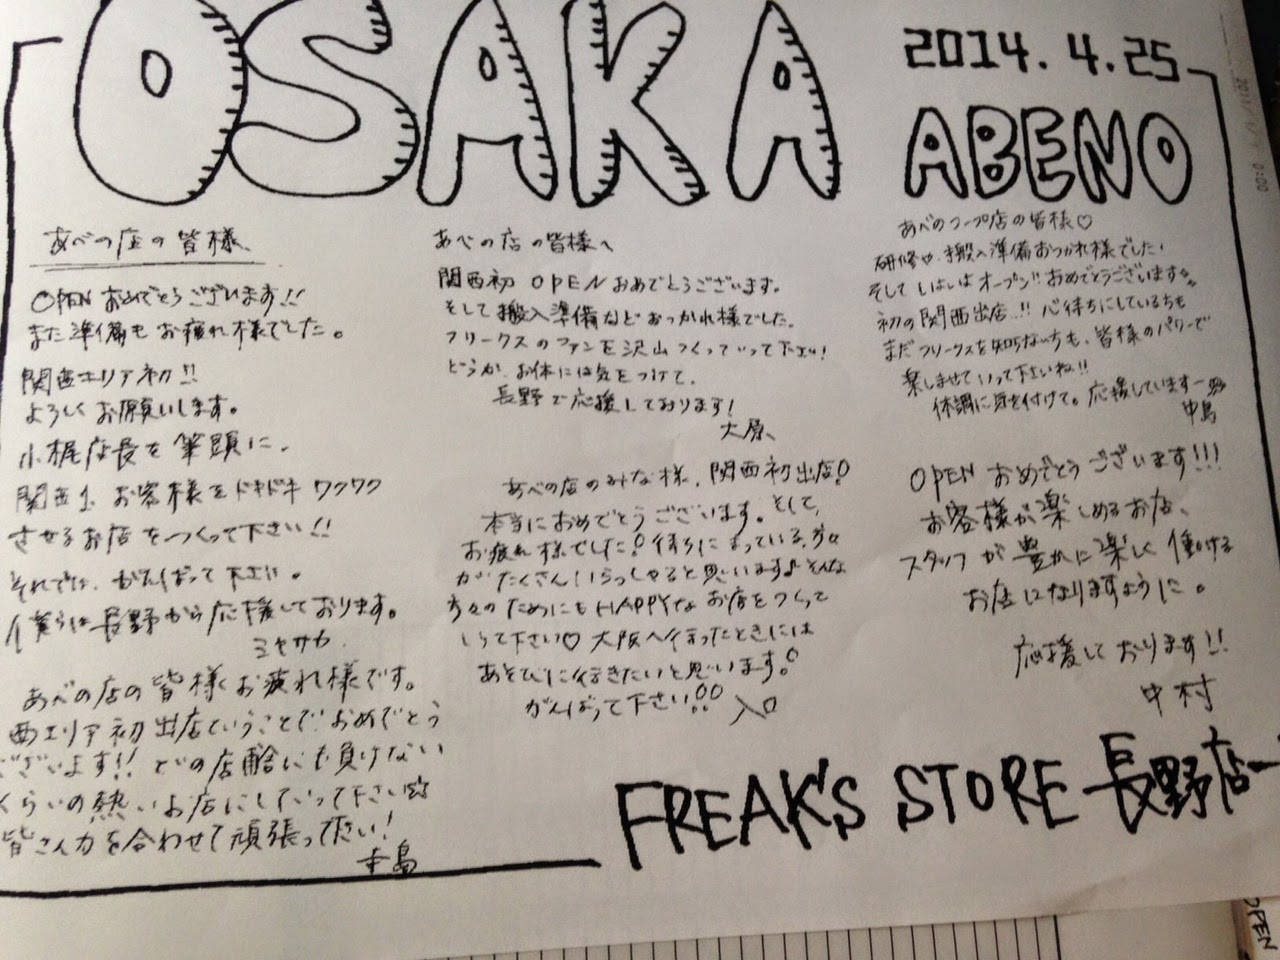 OSAKA
2014.4.25
ABENO
あべの店の皆様
OPENおめでとうございます!!
また準備もお疲れ様でした。
関西エリア初!!
よろしくお願いします。
小梶店長を筆頭に、
関西1、お客様をドキドキワクワク
させるお店をつくって下さい!!
それでは、がんばって下さい。
僕らは長野から応援しております。
ミヤサカ
あべの店の皆様お疲れ様です。
西エリア初出店ということで、おめでとう
ございます!! どの店舗にも負けない
くらいの熱いお店にしていって下さい☆
皆さん力を合わせて頑張って下さい!
寺島
あべの店の皆様へ
関西初OPENおめでとうございます。
そして搬入準備などおつかれ様でした。
フリークスのファンを沢山つくっていって下さい!
どうか、お体には気をつけて、
長野で応援しております!
大原
あべの店のみな様、関西初出店!
本当におめでとうございます。そして、
お疲れ様でした!待ちにまっている方々
がたくさんいらっしゃると思います♪そんな
方々のためにもHAPPYなお店をつくって
いって下さい♡ 大阪へ行ったときには
あそびに行きたいと思います!
がんばって下さい!! 入口
あべのフープ店の皆様♡
研修や、搬入準備おつかれ様でした!
そしていよいよオープン!! おめでとうございます
初の関西出店..!! 心待ちにしている方も
まだフリークスを知らない方も、皆様のパワーで
楽しませていって下さいね!!
体調に気を付けて。応援していますー
中島
OPENおめでとうございます!!!
お客様が楽しめるお店、
スタッフが豊かに楽しく働ける
お店になりますように。
応援しております!!
中村
FREAK'S STORE 長野店一
OPEN